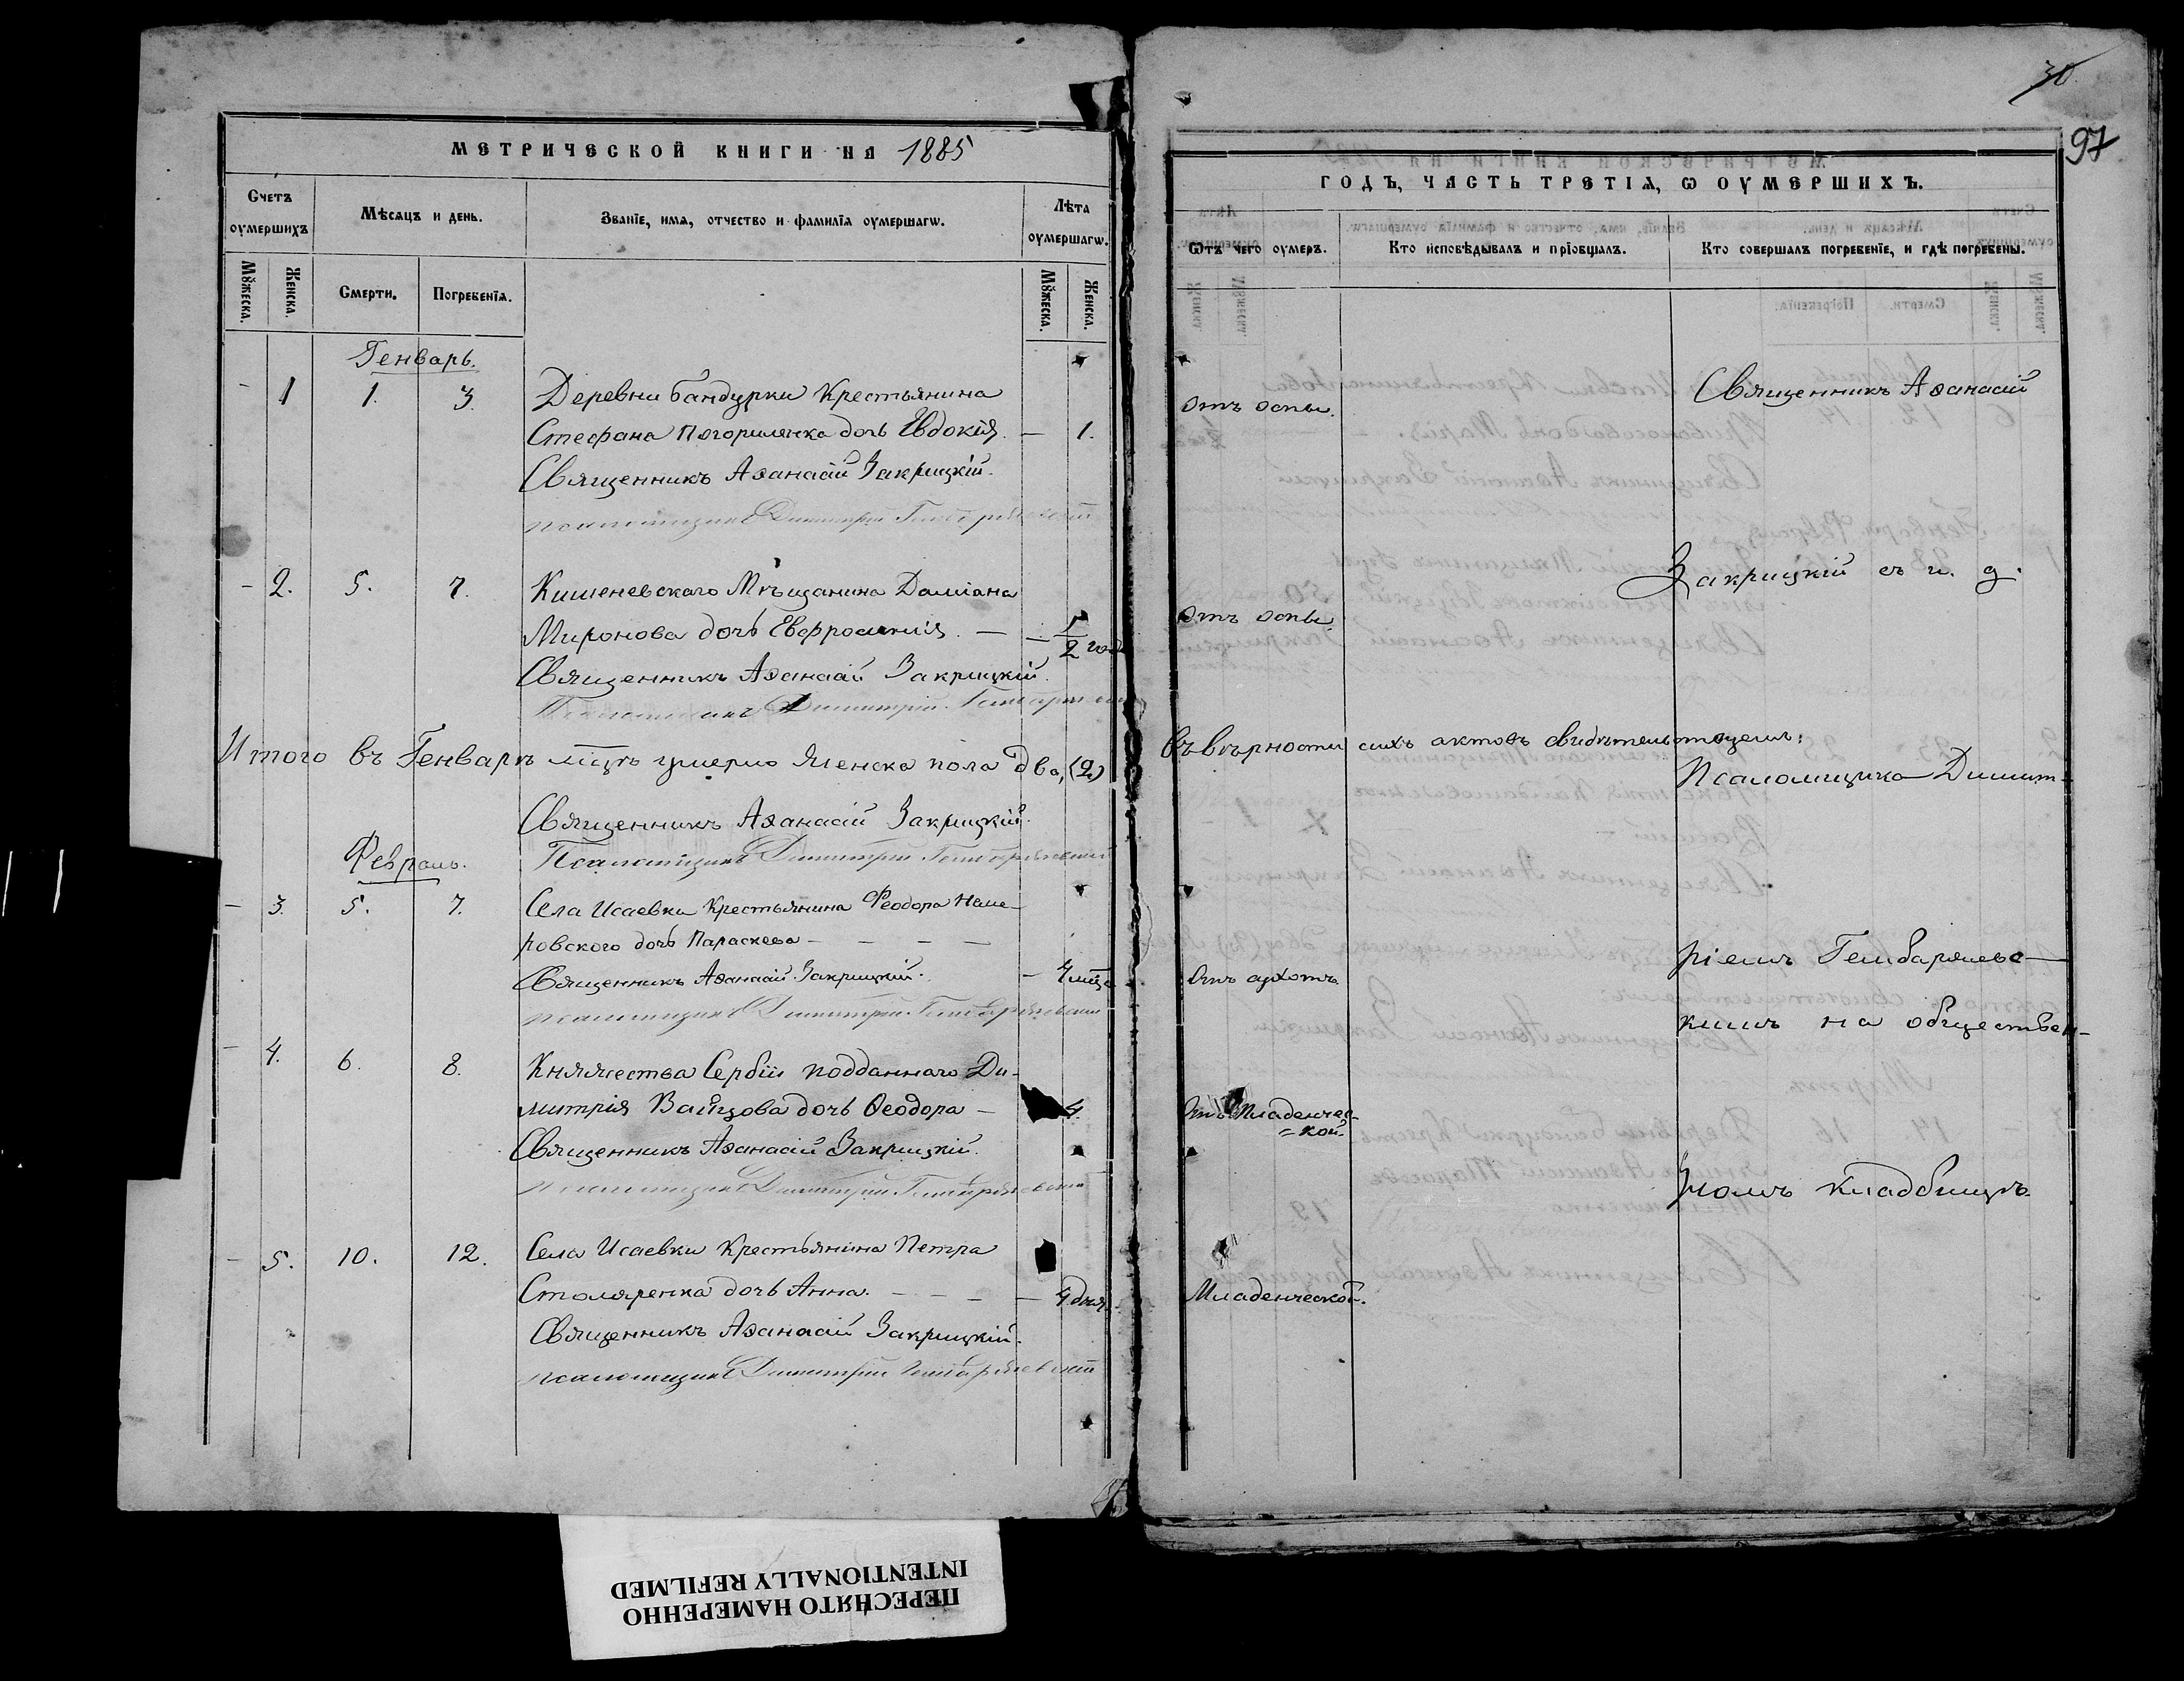 МЕТРИЧЕСКОЙ КНИГИ НА 1885
Счетъ оумершихъ
Мѣсяцъ и день.
Званїе, имя, отчество и фамилїя оумершагѡ.
Лѣта оумершагѡ.
Мꙋжеска.
Женска.
Смерти.
Погребенїя.
Мꙋжеска.
Женска.
Генварь.
- 1 1. 3. Деревни Бандурки Крестьянина
Стефана Погориленка дочь Евдокія. — 1.
Священникъ Аѳанасій Закрицкій.
псаломщикъ Димитрій
- 2. 5. 7. Кишеневскаго Мѣщанина Даміана
Миронова дочь Евфросинія. — — 1/2 года
Священникъ Аѳанасій Закрицкій.
Псаломщикъ Димитрій
Итого въ Генварѣ мцѣ умерло Женска пола два, (2)
Священникъ Аѳанасій Закрицкій.
Псаломщикъ Димитрій
Февраль.
- 3. 5. 7. Села Исаевки Крестьянина Феодора Наме-
ровского дочь Параскева — — — —
Священникъ Аѳанасій Закрицкій. — 4 мца
псаломщикъ Димитрій
- 4. 6. 8. Княжества Сербіи подданнаго Ди-
митрія Вайцова дочь Ѳеодора — 4.
Священникъ Аѳанасій Закрицкій.
псаломщикъ Димитрій
- 5. 10. 12. Села Исаевки Крестьянина Петра
Столяренка дочь Анна. — — — — 4 дня.
Священникъ Аѳанасій Закрицкій.
псаломщикъ Димитрій
30
97
ГОДЪ, ЧАСТЬ ТРЕТІЯ, Ѡ ОУМЕРШИХЪ.
Ѿтъ чего оумеръ.
Кто исповѣдывалъ и прїобщалъ.
Кто совершалъ погребенїе, и гдѣ погребены.
Отъ оспы.
Священникъ Аѳанасій
Закрицкій съ и. д.
Отъ оспы.
Въ вѣрности сихъ актовъ свидѣтельствуемъ:
Псаломщика Димит-
ріемъ Гембаржевс-
Отъ сухотъ
кимъ на обществен-
Отъ младенчес-
=кой.
номъ кладбищѣ.
Младенческой.
ПЕРЕСНЯТО НАМЕРЕННО
INTENTIONALLY REFILMED